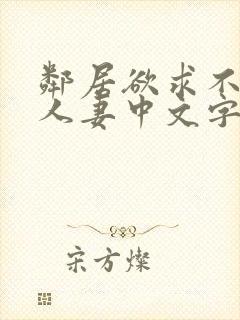 鄰居欲求不
人妻中文字
宋方燦